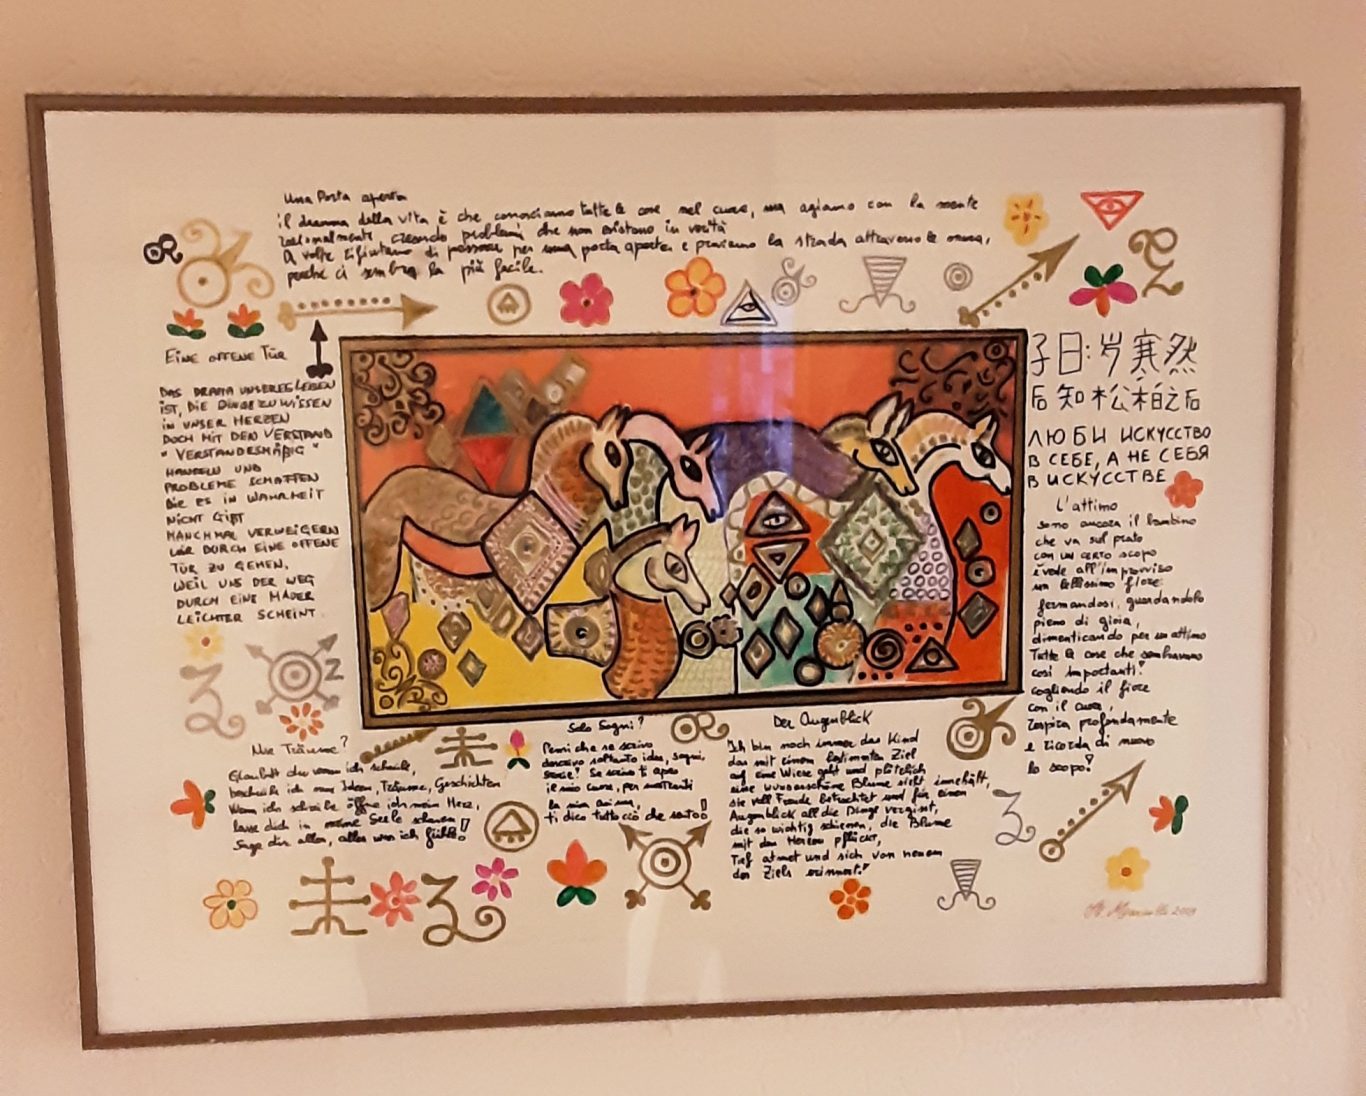 Una Porta aperta
il dramma della vita è che conosciamo tutte le cose nel cuore, ma agiamo con la mente
razionalmente creando problemi che non esistono in verità
A volte rifiutiamo di passare per una porta aperta e proviamo la strada attraverso le mura,
perché ci sembra la più facile.
EINE OFFENE TÜR
DAS DRAMA UNSERES LEBEN
IST, DIE DINGE ZU WISSEN
IN UNSER HERZEN
DOCH MIT DEN VERSTAND
"VERSTANDESMÄßIG"
HANDELN UND
PROBLEME SCHAFFEN
DIE ES IN WAHRHEIT
NICHT GIBT
MANCHMAL VERWEIGERN
WIR DURCH EINE OFFENE
TÜR ZU GEHEN,
WEIL UNS DER WEG
DURCH EINE MAUER
LEICHTER SCHEINT.
子曰:岁寒然
后知松柏之后
ЛЮБИ ИСКУССТВО
В СЕБЕ, А НЕ СЕБЯ
В ИСКУССТВЕ
L'attimo
sono ancora il bambino
che va sul prato
con un certo scopo
e vede all'improvviso
un bellissimo fiore
fermandosi, guardandolo
pieno di gioia,
dimenticando per un attimo
Tutte le cose che sembravano
così importanti!
cogliendo il fiore
con il cuore,
respira profondamente
e ricorda di nuovo
lo scopo!
Nur Träume?
Glaubst du wenn ich schreibe,
beschreibe ich nur Ideen, Träume, Geschichten
Wenn ich schreibe öffne ich mein Herz,
lasse dich in meine Seele schauen!
Sage dir alles, alles was ich fühle!
Solo Sogni?
Pensi che se scrivo
descrivo soltanto idee, sogni,
storie? Se scrivo ti apro
il mio cuore, per mostrarti
la mia anima,
ti dico tutto ciò che sento!
Der Augenblick
Ich bin noch immer das Kind
das mit einem bestimmten Ziel
auf eine Wiese geht und plötzlich
eine wunderschöne Blume sieht innehält,
sie voll Freude betrachtet und für einen
Augenblick all die Dinge vergisst,
die so wichtig schienen, die Blume
mit dem Herzen pflückt,
Tief atmet und sich von neuem
des Ziels erinnert!